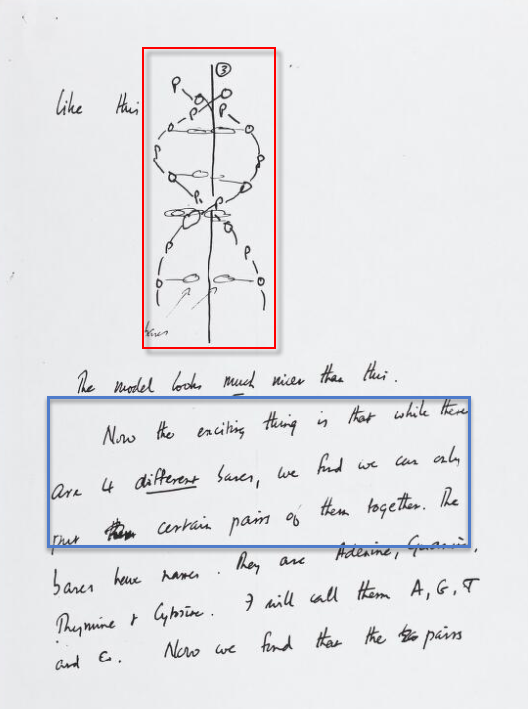 ③
P
P P
like this
P P
P P
P P
bases
The model looks much nicer than this.
Now the exciting thing is that while there
are 4 different bases, we find we can only
put certain pairs of them together. The
bases have names. They are Adenine, Guanine,
Thymine & Cytosine. I will call them A, G, T
and C. Now we find that the pairs